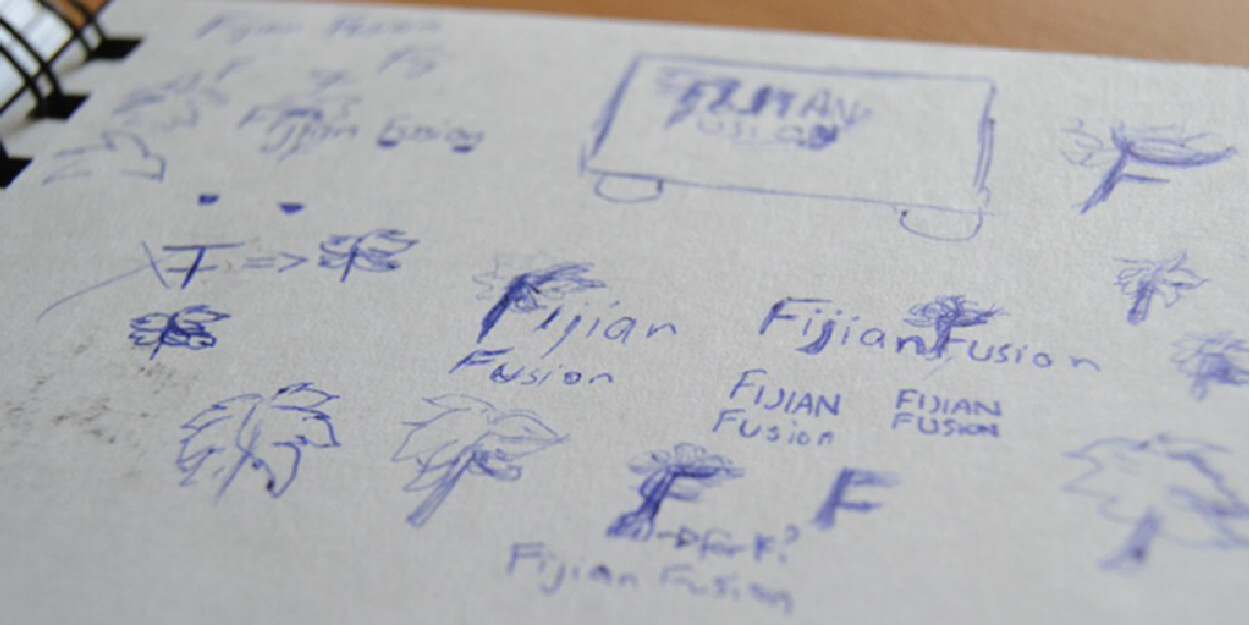 Fijian Fusion
Fij
Fijian Fusion
FIJIAN
Fusion
F
I =>
Fijian
Fusion
Fijian Fusion
FIJIAN
Fusion
FIJIAN
FUSION
F
F
-> for F?
Fijian Fusion